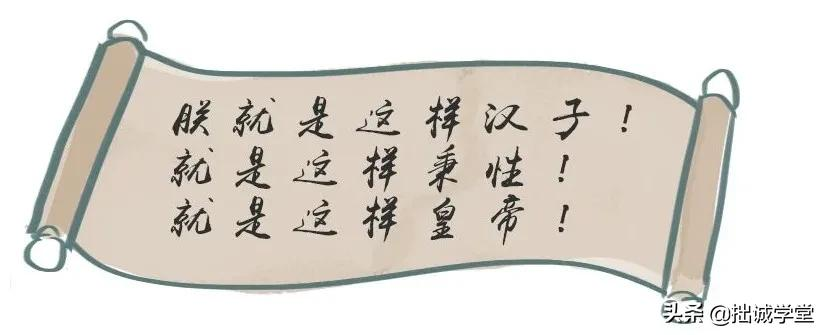 朕就是这样汉子！
就是这样秉性！
就是这样皇帝！
头条 @拙诚学堂